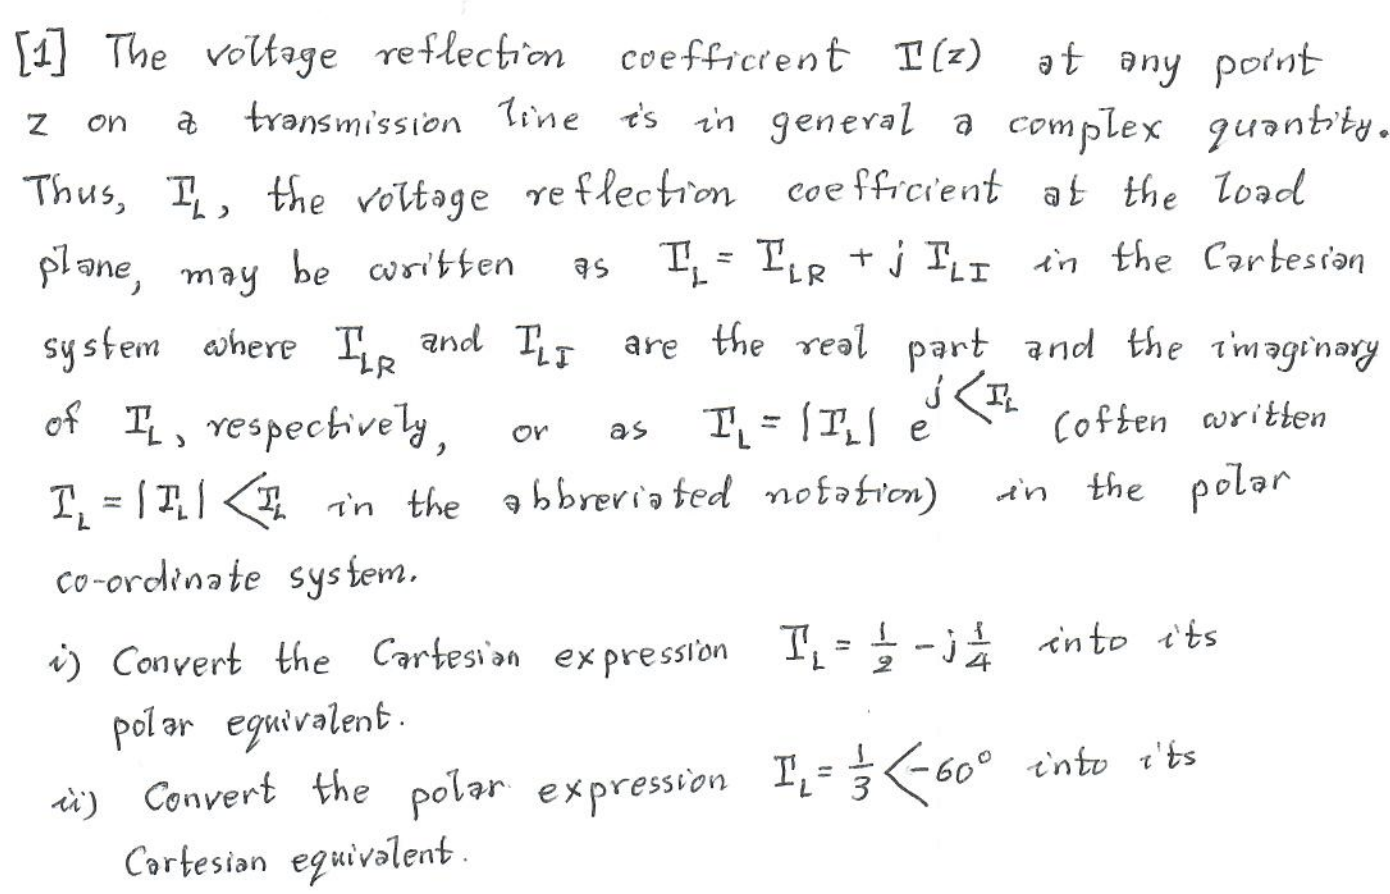 [1] The voltage reflection coefficient Γ(z) at any point
z on a transmission line is in general a complex quantity.
Thus, Γ_L, the voltage reflection coefficient at the load
plane, may be written as Γ_L = Γ_LR + j Γ_LI in the Cartesian
system where Γ_LR and Γ_LI are the real part and the imaginary
of Γ_L, respectively, or as Γ_L = |Γ_L| e^{j∠Γ_L} (often written
Γ_L = |Γ_L| ∠Γ_L in the abbreviated notation) in the polar
co-ordinate system.
i) Convert the Cartesian expression Γ_L = 1/2 - j 1/4 into its
polar equivalent.
ii) Convert the polar expression Γ_L = 1/3 ∠-60° into its
Cartesian equivalent.